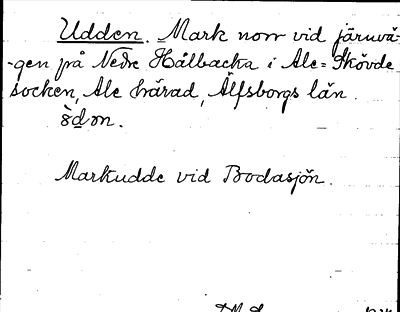 Udden. Mark norr vid järnvä-
-gen på Nedre Hålbacka i Ale-Skövde
socken, Ale härad, Älfsborgs län.
Markudde vid Bodasjön.